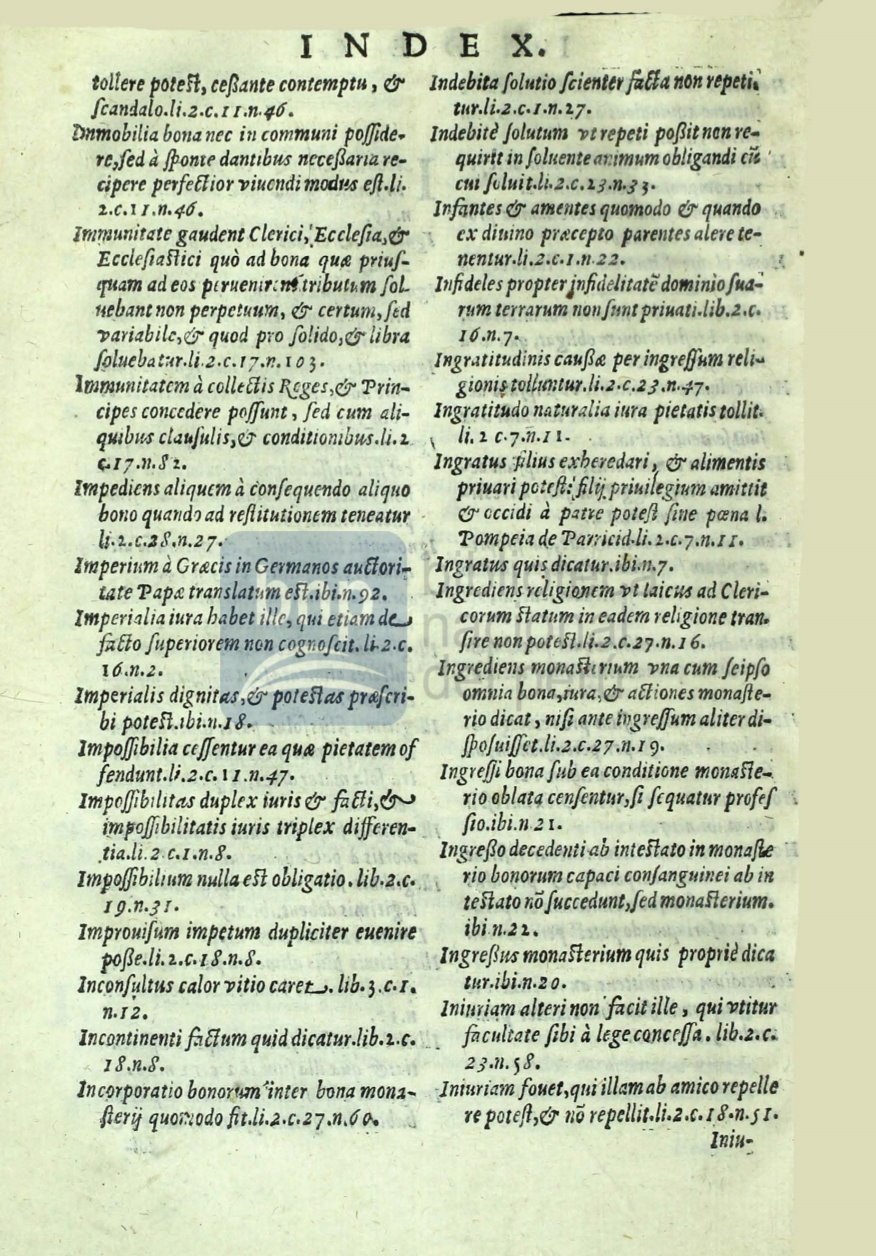 INDEX.
tollere potest, ceßante contemptu, &
scandalo.li.2.c.11.n.46.
Immobilia bona nec in communi posside-
re, sed à sponte dantibus neceßaria re-
cipere perfectior viuendi modus est.li.
2.c.11.n.46.
Immunitate gaudent Clerici, Ecclesia, &
Ecclesiastici quò ad bona quæ prius-
quam ad eos peruenirent tributum sol
uebant non perpetuum, & certum, sed
variabile, & quod pro solido, & libra
soluebatur.li.2.c.17.n.103.
Immunitatem à collectis Reges, & Prin-
cipes concedere possunt, sed cum ali-
quibus clausulis, & conditionibus.li.2
c.17.n.82.
Impediens aliquem à consequendo aliquo
bono quando ad restitutionem teneatur
li.2.c.28.n.27.
Imperium à Græcis in Germanos auctori-
tate Papæ translatum est.ibi.n.92.
Imperialia iura habet ille, qui etiam de
facto superiorem non cognoscit. li.2.c.
16.n.2.
Imperialis dignitas, & potestas præscri-
bi potest.ibi.n.18.
Impossibilia cessentur ea quæ pietatem of
fendunt.li.2.c.11.n.47.
Impossibilitas duplex iuris & facti, &
impossibilitatis iuris triplex differen-
tia.li.2 c.1.n.8.
Impossibilium nulla est obligatio. lib.2.c.
19.n.31.
Improuisum impetum dupliciter euenire
poße.li.2.c.18.n.8.
Inconsultus calor vitio caret. lib.3.c.1.
n.12.
Incontinenti factum quid dicatur.lib.2.c.
18.n.8.
Incorporatio bonorum inter bona mona-
sterij quomodo fit.li.2.c.27.n.60.
Indebita solutio scienter facta non repeti-
tur.li.2.c.1.n.27.
Indebitè solutum vt repeti poßit non re-
quirit in soluente animum obligandi cũ
cui soluit.li.2.c.23.n.33.
Infantes & amentes quomodo & quando
ex diuino præcepto parentes alere te-
nentur.li.2.c.1.n.22.
Infideles propter infidelitatẽ dominio sua-
rum terrarum non sunt priuati.lib.2.c.
16.n.7.
Ingratitudinis caußæ per ingressum reli-
gionis tolluntur.li.2.c.23.n.47.
Ingratitudo naturalia iura pietatis tollit.
li.2 c.7.n.11.
Ingratus filius exheredari, & alimentis
priuari potest: filij priuilegium amittit
& occidi à patre potest sine pœna l.
Pompeia de Parricid.li.2.c.7.n.11.
Ingratus quis dicatur.ibi.n.7.
Ingrediens religionem vt laicus ad Cleri-
corum statum in eadem religione tran-
sire non potest.li.2.c.27.n.16.
Ingrediens monasterium vna cum seipso
omnia bona, iura, & actiones monaste-
rio dicat, nisi ante ingressum aliter di-
sposuisset.li.2.c.27.n.19.
Ingressi bona sub ea conditione monaste-
rio oblata censentur, si sequatur profes
sio.ibi.n 21.
Ingreßo decedenti ab intestato in monaste
rio bonorum capaci consanguinei ab in
testato nõ succedunt, sed monasterium.
ibi n.22.
Ingreßus monasterium quis propriè dica
tur.ibi.n.20.
Iniuriam alteri non facit ille, qui vtitur
facultate sibi à lege concessa. lib.2.c.
23.n.58.
Iniuriam fouet, qui illam ab amico repelle
re potest, & nõ repellit.li.2.c.18.n.51.
Iniu-